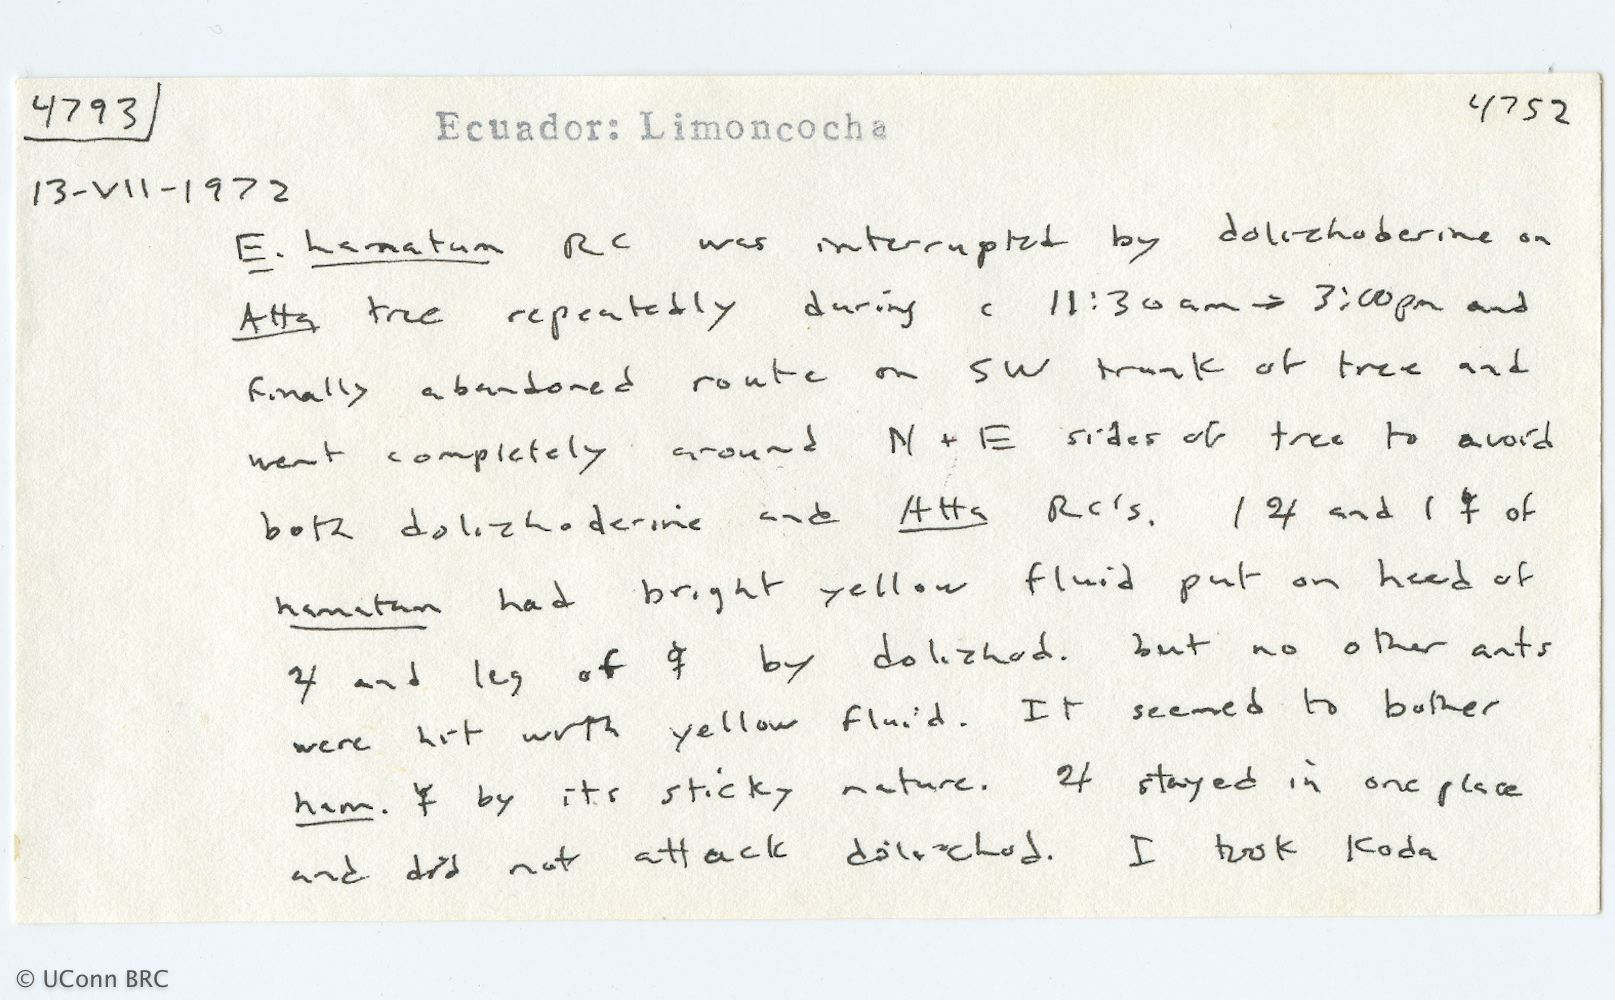 4793
4752
Ecuador: Limoncocha
13-VII-1972
E. hamatum RC was interrupted by dolichoderine on
Atta tree repeatedly during c 11:30am → 3:00pm and
finally abandoned route on SW trunk of tree and
went completely around N + E sides of tree to avoid
both dolichoderine and Atta RC's. 1 ♃ and 1 ☿ of
hamatum had bright yellow fluid put on head of
♃ and leg of ☿ by dolichod. but no other ants
were hit with yellow fluid. It seemed to bother
ham. ☿ by its sticky nature. ♃ stayed in one place
and did not attack dolichod. I took Koda
© UConn BRC